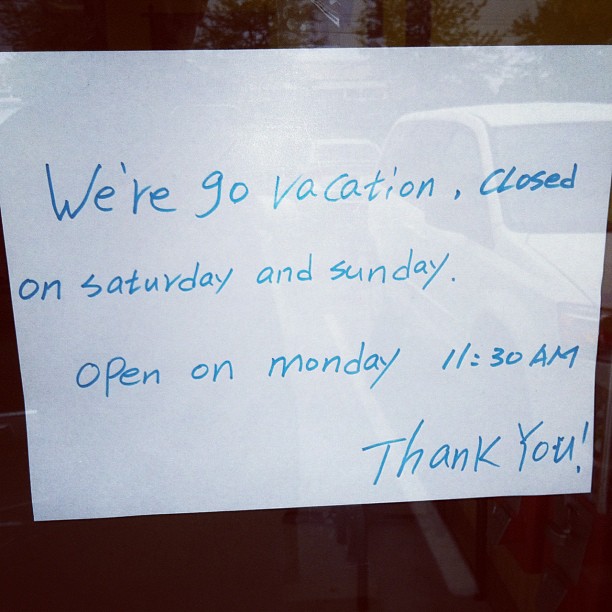 We're go vacation, closed
on saturday and sunday.
open on monday 11:30 AM
Thank You!